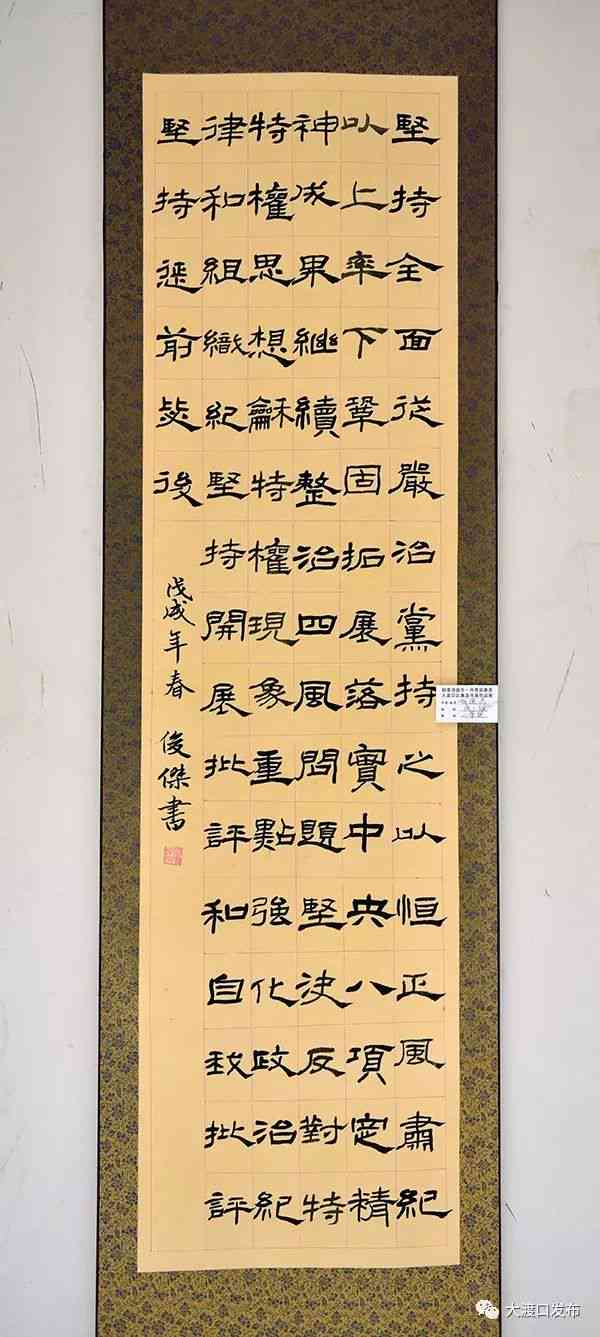 堅持全面從嚴治黨持之以恒正風肅紀
以上率下鞏固拓展落實中央八項定精
神成果繼續整治四風問題堅決反對特
特權思想龢特權現象重點強化政治紀
律和組織紀堅持開展批評和自我批評
堅持惩前毖後
戊戌年春 俊傑書
大渡口发布